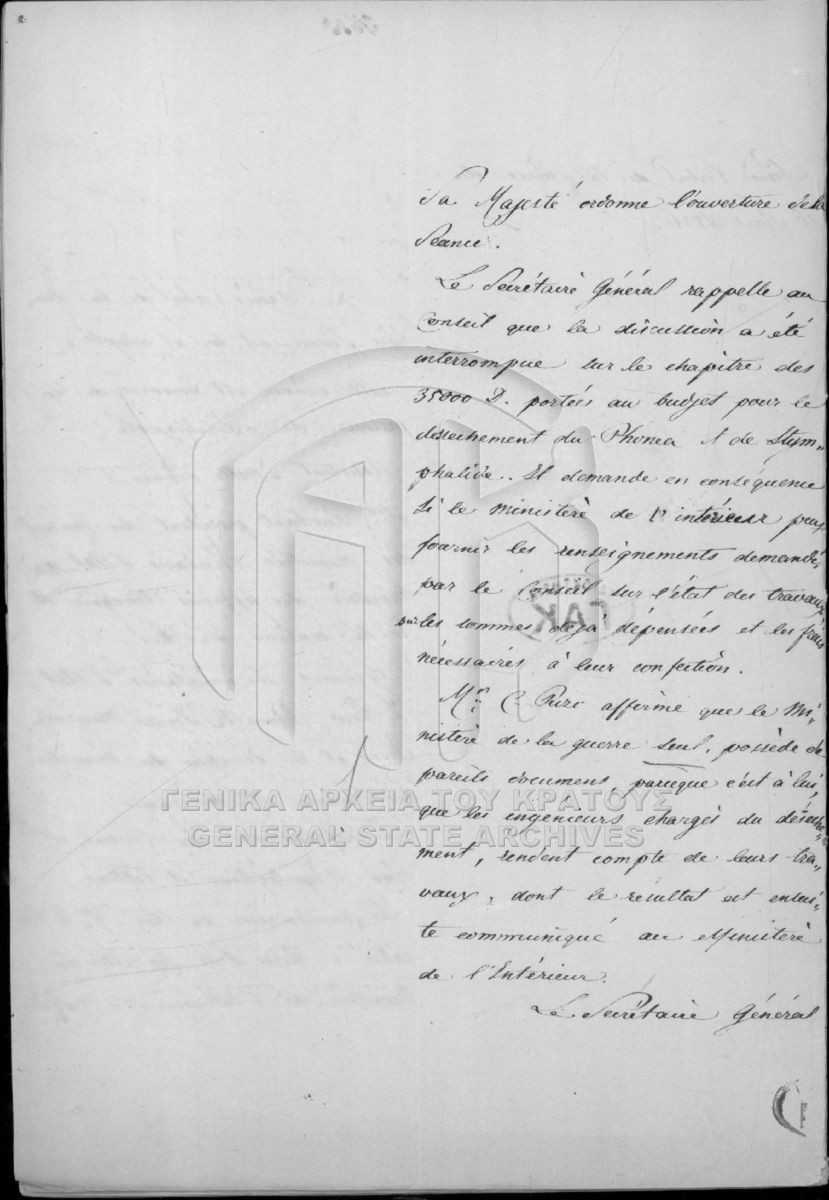 2
Sa Majesté ordonne l'ouverture de la
Séance.
Le Secrétaire Général rappelle au
Conseil que la discussion a été
interrompue sur le chapitre des
35000 D. portées au budget pour le
desséchement du Phonea & de Stym-
phalide.. Il demande en conséquence
si le ministère de l'intérieur peut
fournir les renseignements demandés
par le Conseil sur l'état des travaux
sur les sommes déjà dépensées et les frais
nécessaires à leur confection.
Mr. C. affirme que le Mi-
nistère de la guerre seul, possède de
pareils documens, parceque c'est à lui,
que les ingénieurs chargés du déseche-
ment, rendent compte de leurs tra-
vaux, dont le résultat est ensui-
te communiqué au Ministère
de l'Intérieur.
Le Secrétaire Général
ΓΕΝΙΚΑ ΑΡΧΕΙΑ ΤΟΥ ΚΡΑΤΟΥΣ
GENERAL STATE ARCHIVES
ΓΑΚ